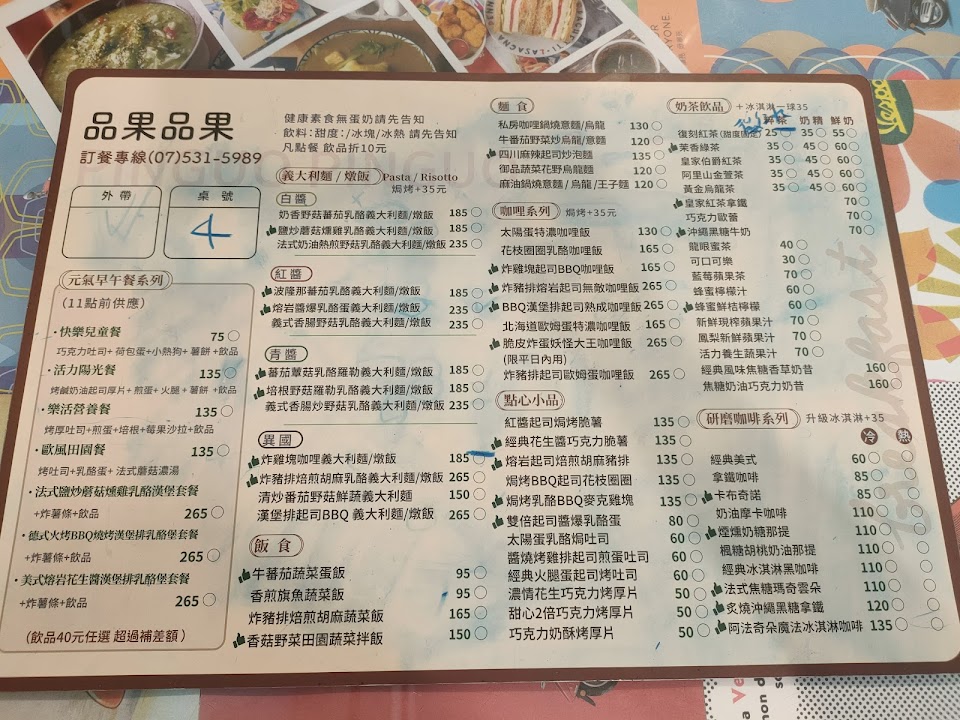 品果品果
訂餐專線(07)531-5989
外帶
桌號
4
健康素食無蛋奶請先告知
飲料：甜度：/冰塊/冰熱 請先告知
凡點餐 飲品折10元
元氣早午餐系列
(11點前供應)
・快樂兒童餐 75
巧克力吐司+荷包蛋+小熱狗+薯餅+飲品
・活力陽光餐 135
烤鹹奶油起司厚片+煎蛋+火腿+薯餅+飲品
・樂活營養餐 135
烤厚吐司+煎蛋+培根+莓果沙拉+飲品
・歐風田園餐 135
烤吐司+乳酪蛋+法式蘑菇濃湯
・法式鹽炒蘑菇燻雞乳酪漢堡套餐
+炸薯條+飲品 265
・德式火烤BBQ燒烤漢堡排乳酪堡套餐
+炸薯條+飲品 265
・美式熔岩花生醬漢堡排乳酪堡套餐
+炸薯條+飲品 265
(飲品40元任選 超過補差額)
義大利麵/燉飯 Pasta / Risotto
焗烤+35元
白醬
奶香野菇蕃茄乳酪義大利麵/燉飯 185
鹽炒蘑菇燻雞乳酪義大利麵/燉飯 185
法式奶油熱煎野菇乳酪義大利麵/燉飯 235
紅醬
波隆那蕃茄乳酪義大利麵/燉飯 185
熔岩醬爆乳酪蛋義大利麵/燉飯 235
義式香腸野菇乳酪義大利麵/燉飯 235
青醬
蕃茄蕈菇羅勒乳酪義大利麵/燉飯 185
培根野菇羅勒乳酪義大利麵/燉飯 185
義式香腸炒野菇乳酪義大利麵/燉飯 235
異國
炸雞塊咖哩義大利麵/燉飯 185
炸豬排焙煎胡麻乳酪義大利麵/燉飯 265
清炒番茄野菇鮮蔬義大利麵 150
漢堡排起司BBQ 義大利麵/燉飯 265
飯食
牛蕃茄蔬菜蛋飯 95
香煎旗魚蔬菜飯 95
炸豬排焙煎胡麻蔬菜飯 165
香菇野菜田園蔬菜拌飯 150
麵食
私房咖哩鍋燒意麵/烏龍 130
牛番茄野菜炒烏龍/意麵 120
四川麻辣起司炒泡麵 135
御品蔬菜花野烏龍麵 120
麻油鍋燒意麵/烏龍/王子麵 120
咖哩系列 焗烤+35元
太陽蛋特濃咖哩飯 130
花枝圈圈乳酪咖哩飯 165
炸雞塊起司BBQ咖哩飯 165
炸豬排焙煎起司無敵咖哩飯 265
BBQ漢堡排起司熟成咖哩飯 265
北海道歐姆蛋特濃咖哩飯 165
脆皮炸蛋妖怪大王咖哩飯 265
(限平日內用)
炸豬排起司歐姆蛋咖哩飯 265
點心小品
紅醬起司焗烤脆薯 135
經典花生醬巧克力脆薯 135
熔岩起司焙煎胡麻豬排 135
焗烤BBQ起司花枝圈圈 135
焗烤乳酪BBQ麥克雞塊 135
雙倍起司醬爆乳酪蛋 80
太陽蛋乳酪焗吐司 60
醬燒烤雞排起司煎蛋吐司 60
經典火腿蛋起司烤吐司 60
濃情花生巧克力烤厚片 50
甜心2倍巧克力烤厚片 50
巧克力奶酥烤厚片 50
奶茶飲品 +冰淇淋一球35
鮮茶 奶精 鮮奶
復刻紅茶(甜度固定) 25 35 55
茉香綠茶 35 45 60
皇家伯爵紅茶 35 45 60
阿里山金萱茶 35 45 60
黃金烏龍茶 35 45 60
皇家紅茶拿鐵 70
巧克力歐蕾 70
沖繩黑糖牛奶 70
龍眼蜜茶 40
可口可樂 30
藍莓蘋果茶 70
蜂蜜檸檬汁 60
蜂蜜鮮桔檸檬 60
新鮮現榨蘋果汁 70
鳳梨新鮮蘋果汁 70
活力養生蔬果汁 70
經典風味焦糖香草奶昔 160
焦糖奶油巧克力奶昔 160
研磨咖啡系列 升級冰淇淋+35
冷 熱
經典美式 60
拿鐵咖啡 85
卡布奇諾 85
奶油摩卡咖啡 110
煙燻奶糖那提 110
楓糖胡桃奶油那提 110
經典冰淇淋黑咖啡 110
法式焦糖瑪奇雲朵 110
炙燒沖繩黑糖拿鐵 120
阿法奇朵魔法冰淇淋咖啡 135